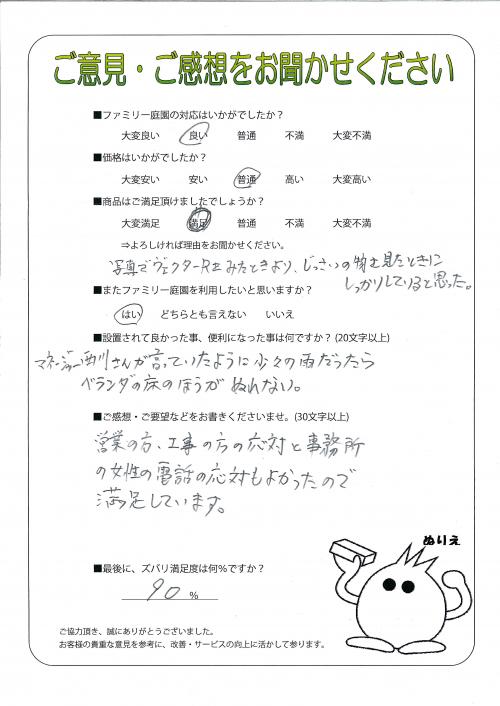 ご意見・ご感想をお聞かせください
■ファミリー庭園の対応はいかがでしたか？
大変良い 良い 普通 不満 大変不満
■価格はいかがでしたか？
大変安い 安い 普通 高い 大変高い
■商品はご満足頂けましたでしょうか？
大変満足 満足 普通 不満 大変不満
⇒よろしければ理由をお聞かせください。
写真でヴェクターRをみたときより、じっさいの物を見たときに
しっかりしていると思った。
■またファミリー庭園を利用したいと思いますか？
はい どちらとも言えない いいえ
■設置されて良かった事、便利になった事は何ですか？(20文字以上)
マネージャー西川さんが言っていたように少々の雨だったら
ベランダの床のほうがぬれない。
■ご感想・ご要望などをお書きくださいませ。(30文字以上)
営業の方、工事の方の応対と事務所
の女性の電話の応対もよかったので
満足しています。
ぬりえ
■最後に、ズバリ満足度は何％ですか？
90 ％
ご協力頂き、誠にありがとうございました。
お客様の貴重な意見を参考に、改善・サービスの向上に活かして参ります。